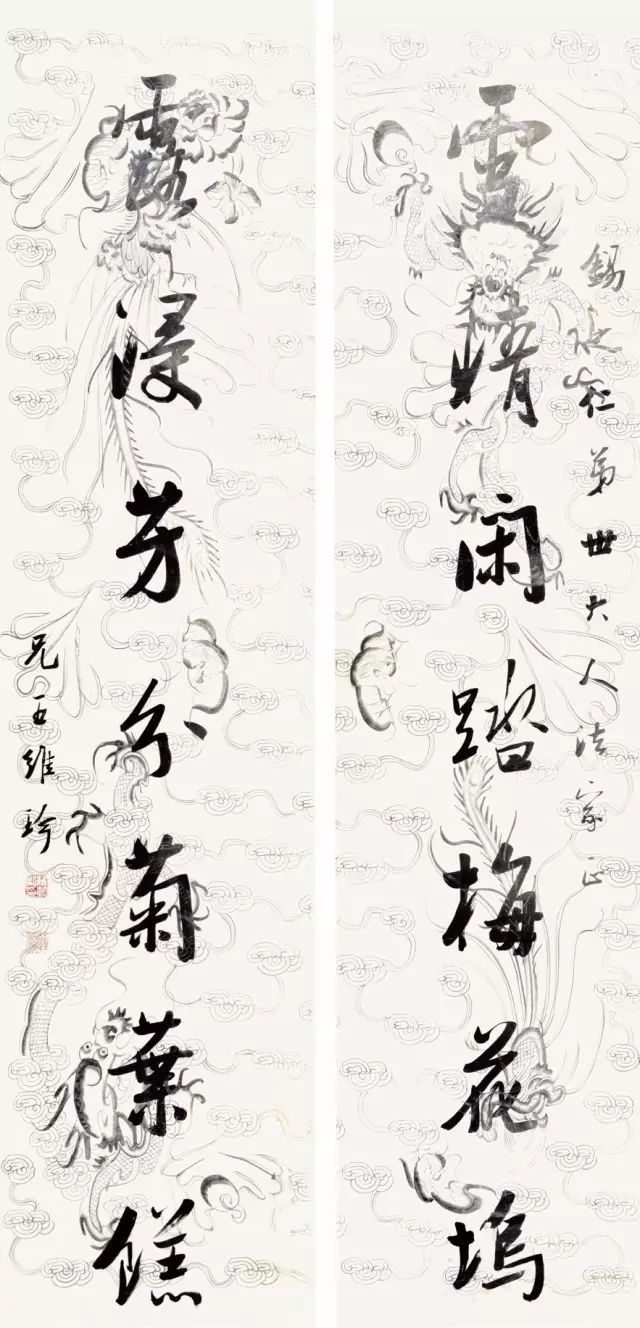 錫仁弟世大人法家正
雪晴閑踏梅花塢
露浸芳分菊葉餻
兄王維珍